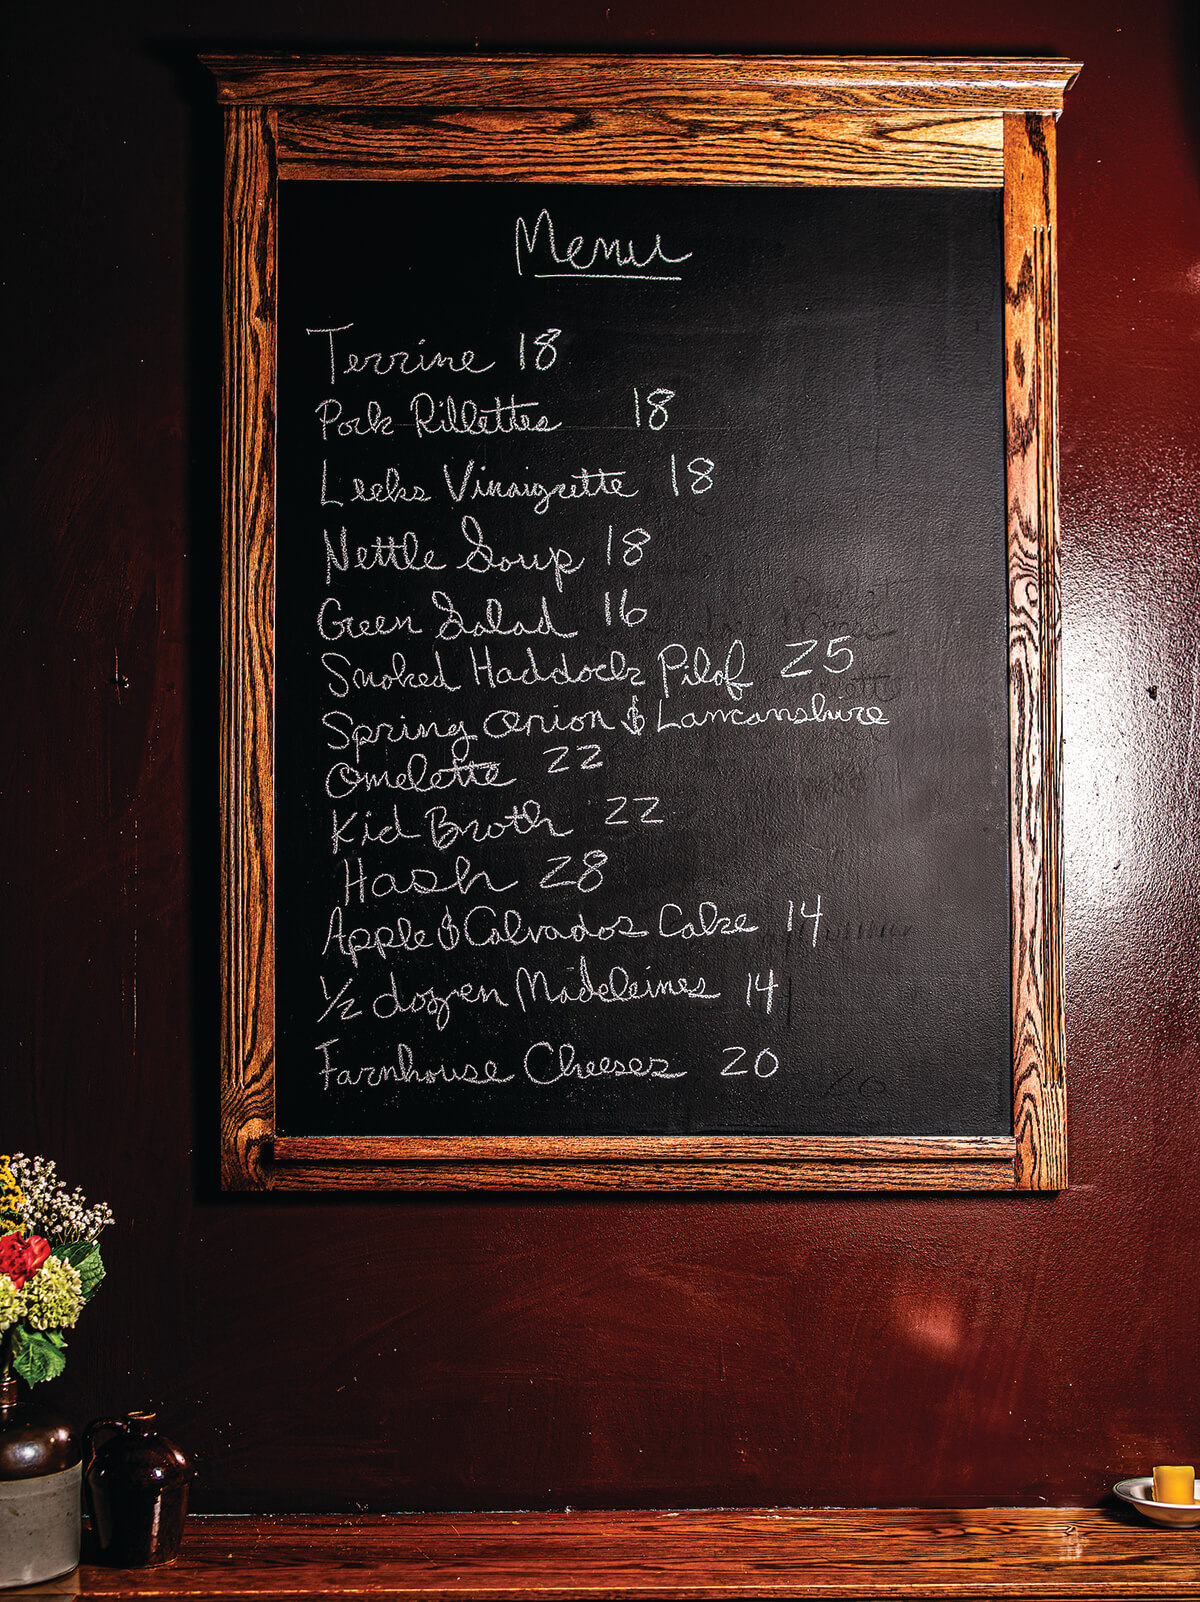 Menu
Terrine 18
Pork Rillettes 18
Leeks Vinaigrette 18
Nettle Soup 18
Green Salad 16
Smoked Haddock Pilaf 25
Spring Onion & Lancanshire
Omelette 22
Kid Broth 22
Hash 28
Apple & Calvados Cake 14
1/2 dozen Madeleines 14
Farmhouse Cheeses 20